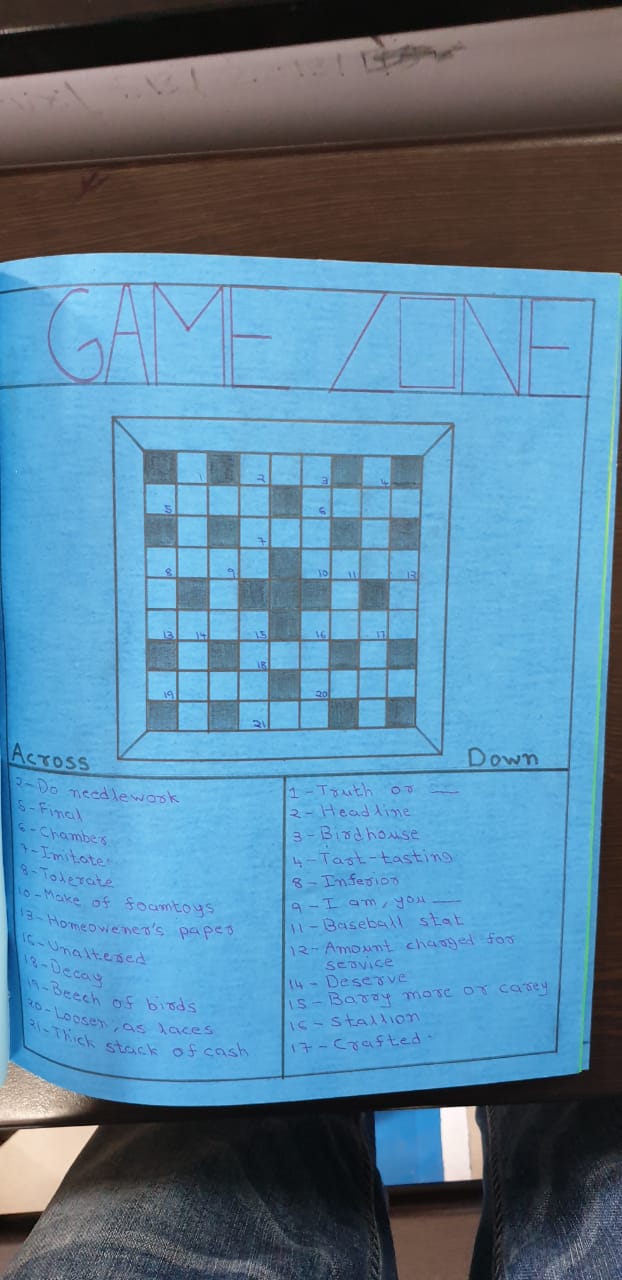 GAME ZONE
1 2 3 4
5 6
7
8 9 10 11 13
13 14 15 16 17
18
19 20
21
Across
2-Do needlework
5-Final
6-Chamber
7-Imitate
8-Tolerate
10-Make of foamtoys
13-Homeowener's paper
16-Unaltered
18-Decay
19-Beech of birds
20-Loosen, as laces
21-Thick stack of cash
Down
1-Truth or
2-Headline
3-Birdhouse
4-Tart-tasting
8-Inferior
9-I am, you
11-Baseball stat
12-Amount charged for
service
14-Deserve
15-Barry more or carey
16-Stallion
17-Crafted.